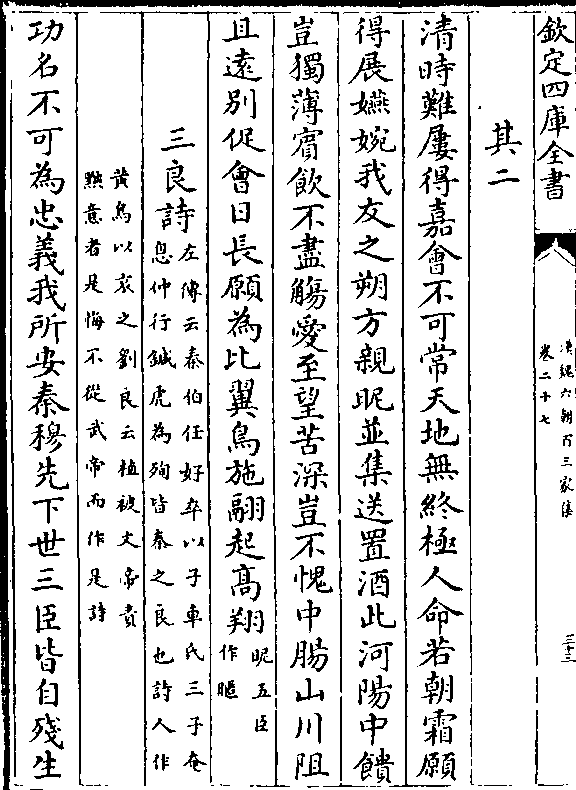 欽定四庫全書
漢魏六朝百三家集
卷二十七
三十三
其二
清時難屢得嘉會不可常天地無終極人命若朝霜願
得展嬿婉我友之朔方親昵並集送置酒此河陽中饋
豈獨薄賓飲不盡觴愛至望苦深豈不愧中腸山川阻
且遠別促會日長願為比翼鳥施翮起高翔
昵五臣
作暱
三良詩
左傳云秦伯任好卒以子車氏三子奄
息仲行鍼虎為殉皆秦之良也詩人作
黄鳥以哀之劉良云植被文帝責
黜意者是悔不從武帝而作是詩
功名不可為忠義我所安秦穆先下世三臣皆自殘生